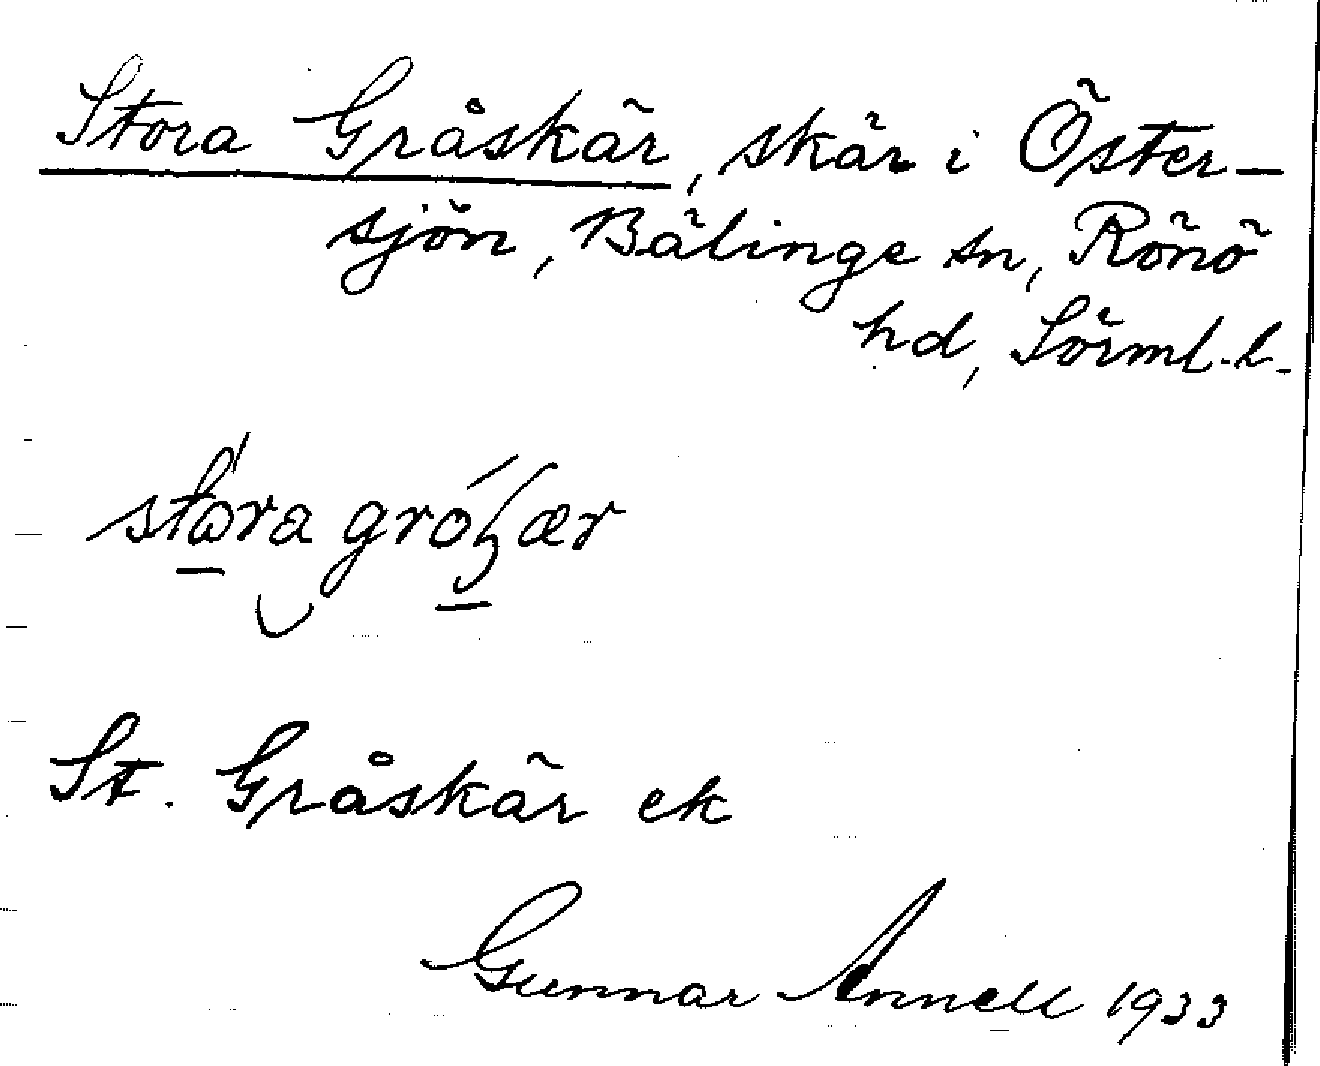 Stora Gråskär, skär i Öster-
sjön, Bälinge sn, Rönö
hd, Sörml. l.
St. Gråskär ek
Gunnar Annell 1933